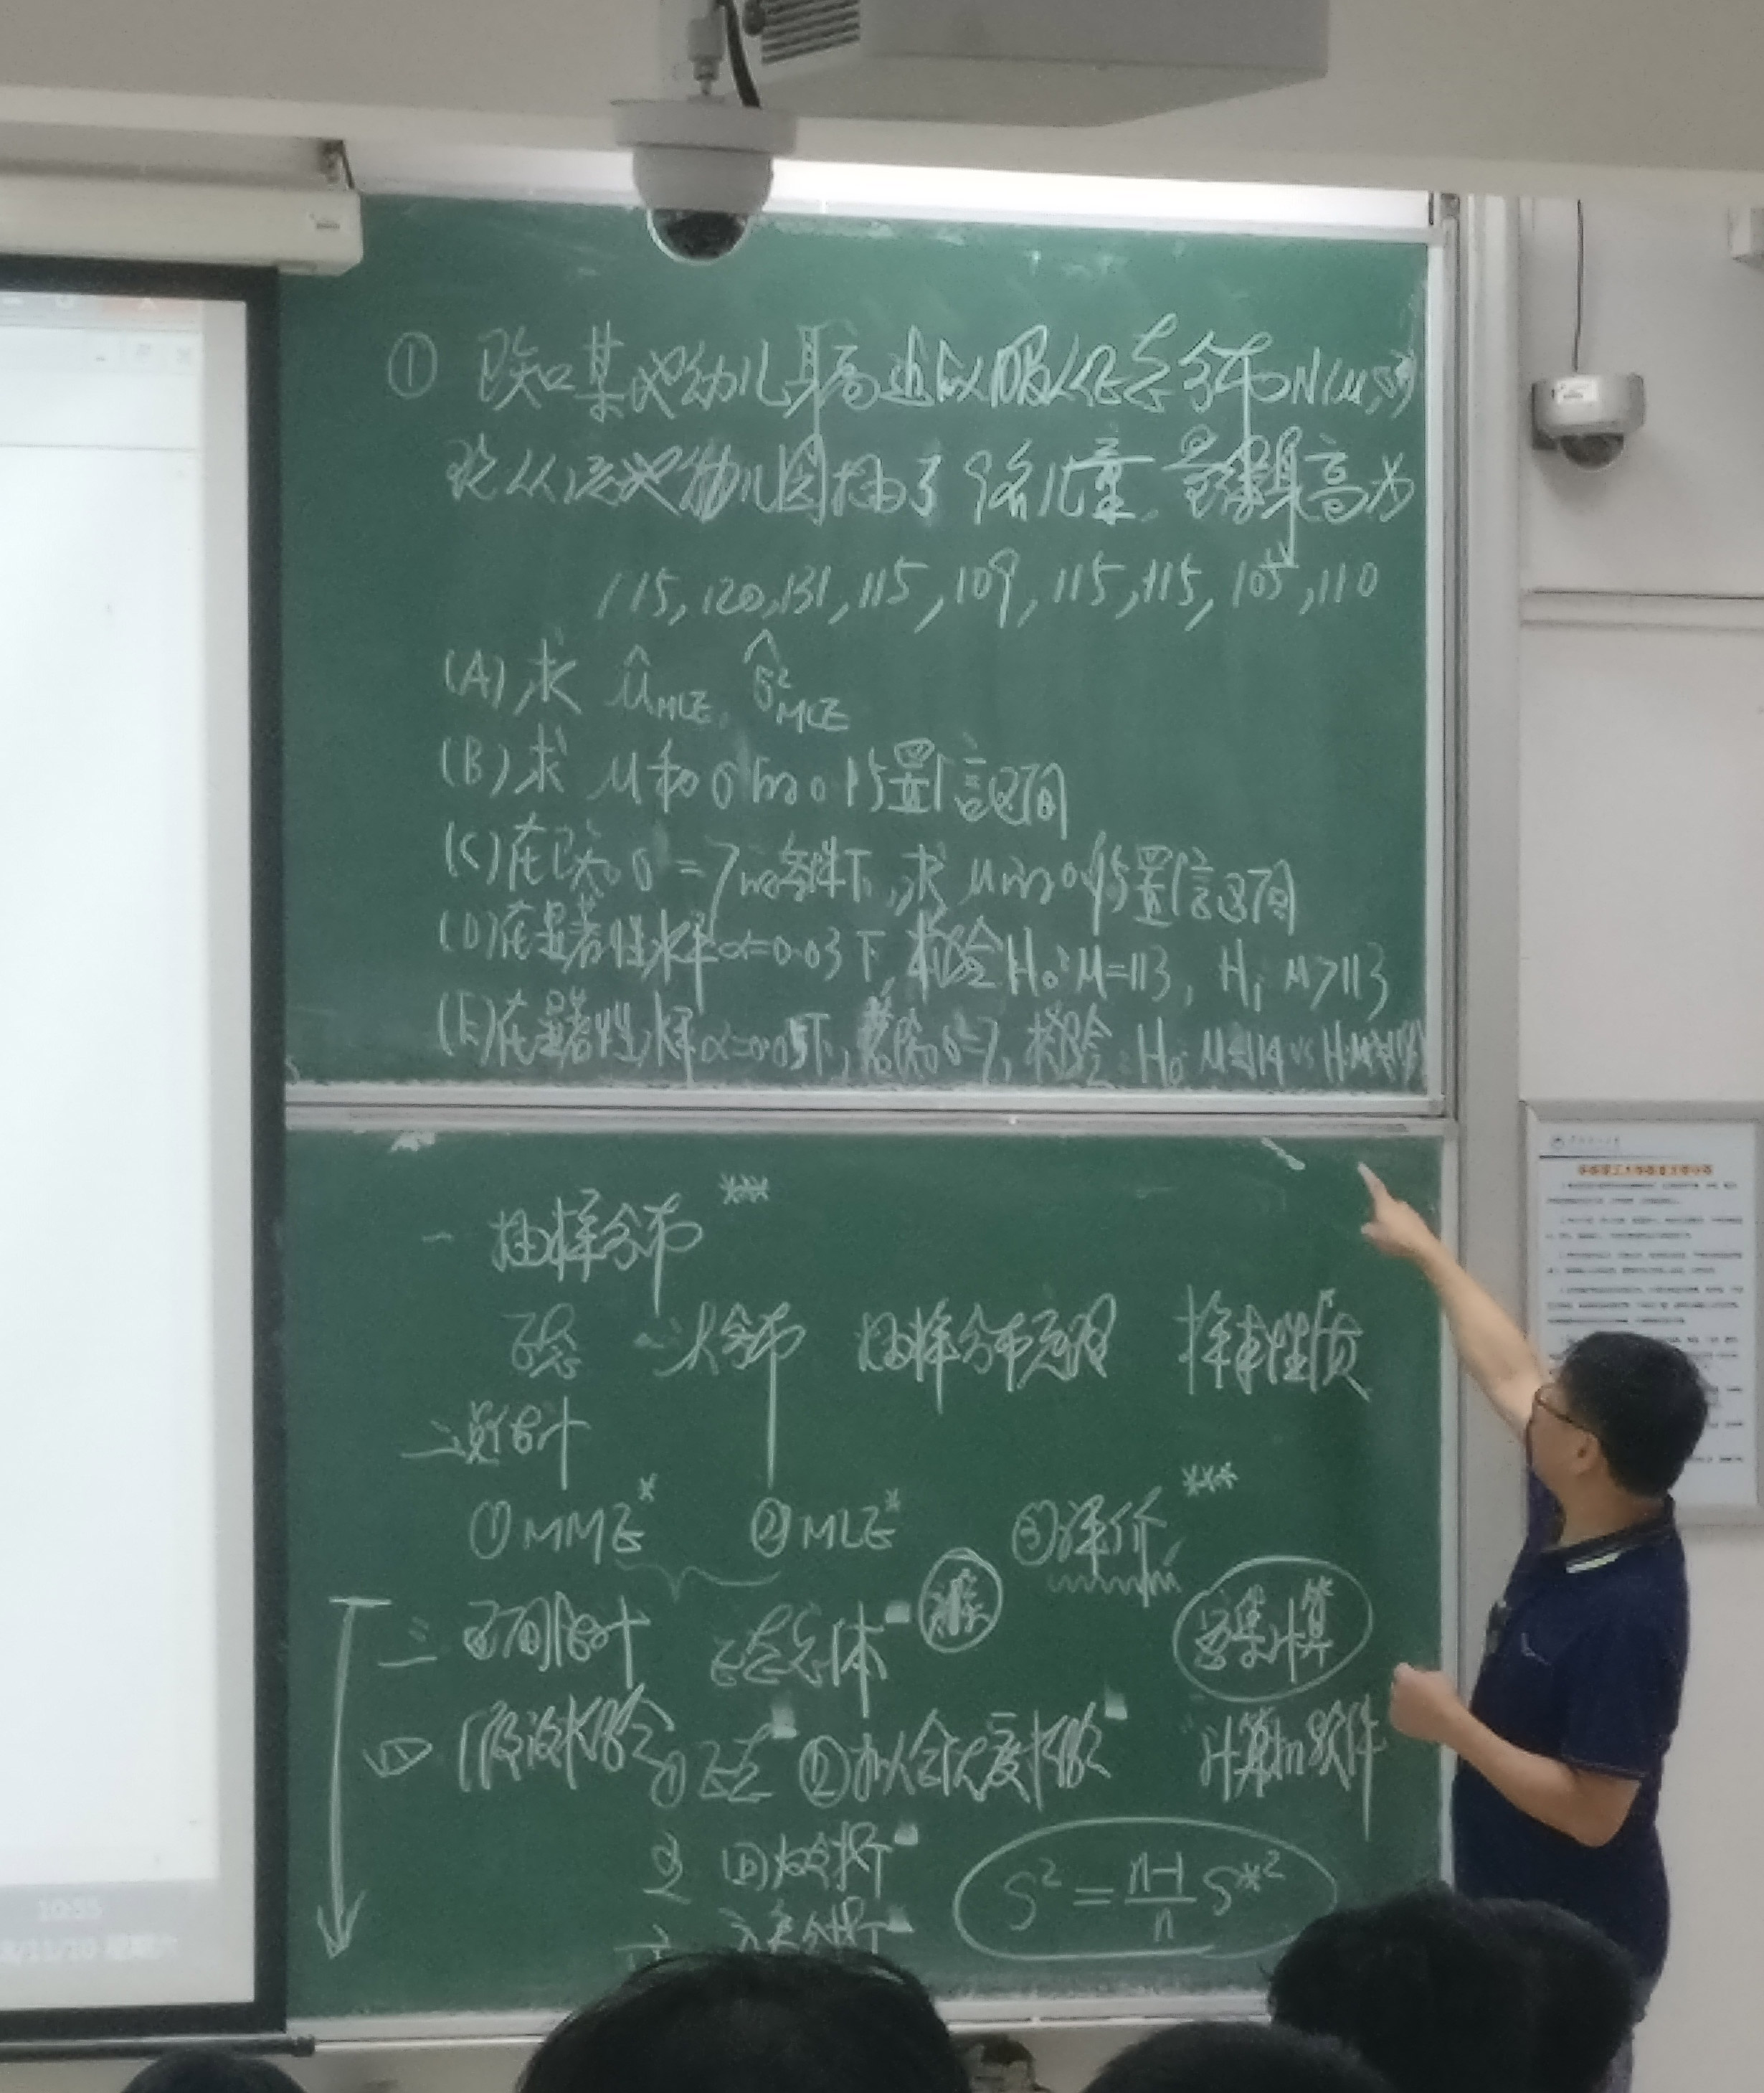 ① 已知某地幼儿身高近似服从正态分布N(μ,σ²)
现从该地幼儿园抽了9名儿童,量得身高为
115,120,131,115,109,115,115,105,110
(A)求 μ̂MLE, σ̂²MLE
(B)求 μ和σ的0.95置信区间
(C)在已知σ=7的条件下,求μ的0.95置信区间
(D)在显著性水平α=0.03下,检验H₀:μ=113, H₁ μ>113
(E)在显著性水平α=0.05下,若σ=7,检验:H₀
一 抽样分布***
概念 三大分布 抽样分布定理 样本性质
二 点估计
①MME* ②MLE* ③评价***
三 区间估计 正态总体
计算
四 假设检验 ①正态 ②拟合优度检验 计算机软件
分析
方差分析
S² = n-1/n S*²
10:55